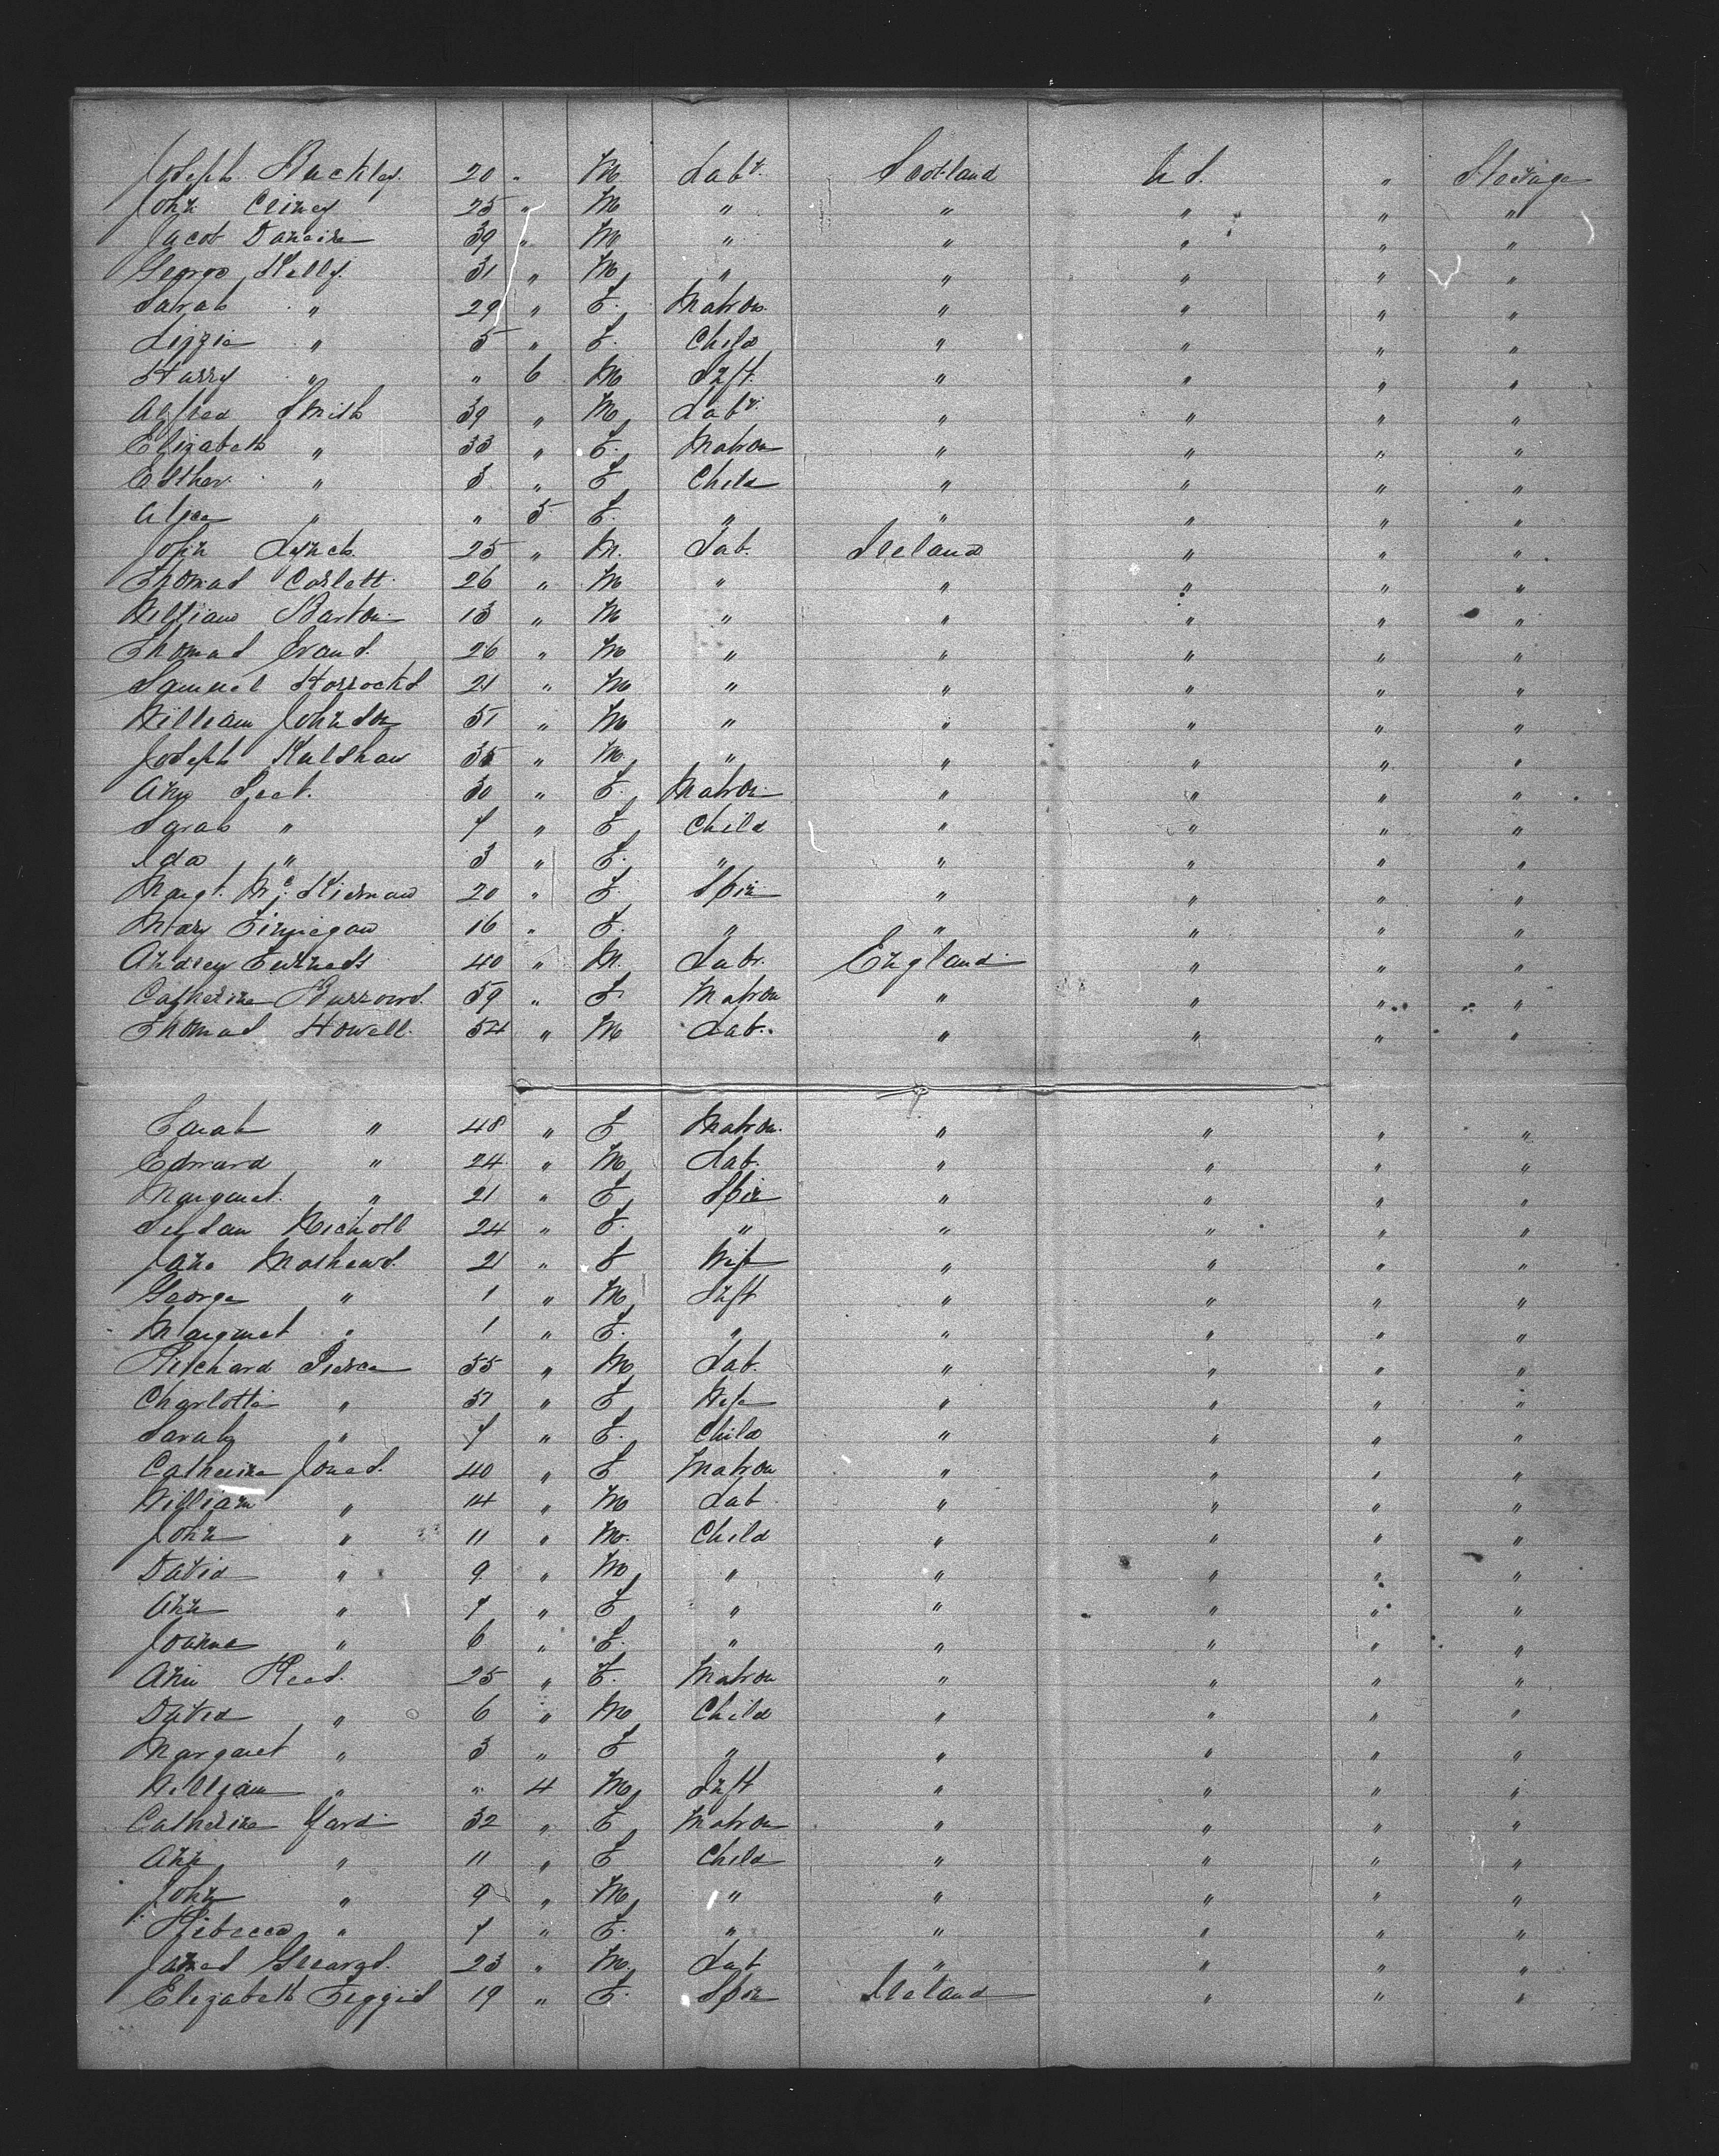 Joseph Buckley. 20 " M Labr. Scotland U S. " Steerage
John Cliney 25 " M " " " " "
Jacob 39 " M " " " " "
George Kelly. 31 " M " " " " "
Sarah " 29 " F. Matron " " " "
Lizzie " 5 " F. Child " " " "
Harry " " 6 M Inft. " " " "
Alfred Smith 39 " M Labr. " " " "
Elizabeth " 33 " F. Matron " " " "
Esther " 3 " F Child " " " "
Alice " " 5 F. " " " " "
John Lynch. 25 " M. Lab. Ireland " " "
Thomas Corlett. 26 " M " " " " "
William Barton 13 " M " " " " "
Thomas Evans. 26 " M " " " " "
Samuel Horrocks 21 " M " " " " "
William Johnson 51 " M " " " " "
Joseph Kulshaw 35 " M " " " " "
Ann Peet. 30 " F. Matron " " " "
Sarah " 7 " F Child " " " "
Ida " 3 " F. " " " " "
Margt. Mc. Kiernan 20 " F. Spin " " " "
Mary Finnegan 16 " F. " " " " "
Andrew 40 " M. Labr. England " " "
Catherine Burrows. 59 " F Matron " " " "
Thomas Howell. 54 " M Lab. " " " "
Sarah " 48 " F Matron. " " " "
Edward " 24 " M Lab. " " " "
Margaret. " 21 " F Spin " " " "
Susan Nicholl 24 " F. " " " " "
Jane Mathews. 21 " F Wife " " " "
George " 1 " M Inft " " " "
Margaret " 1 " F. " " " " "
Richard Pierce 55 " M Lab. " " " "
Charlotte " 51 " F Wife " " " "
Sarah " 7 " F. Child " " " "
Catherine Jones. 40 " F Matron " " " "
William " 14 " M Lab " " " "
John " 11 " M. Child " " " "
David " 9 " M " " " " "
Ann " 7 " F " " " " "
Joanna " 6 " F. " " " " "
Ann Rees. 25 " F. Matron " " " "
David " 6 " M Child " " " "
Margaret " 3 " F " " " " "
William " " 4 M Inft " " " "
Catherine Yard 32 " F Matron " " " "
Ann " 11 " F Child " " " "
John " 9 " M " " " " "
Rebecca " 7 " F. " " " " "
James 23 " M. Lab " " " "
Elizabeth Figgis 19 " F. Spin Ireland " " "